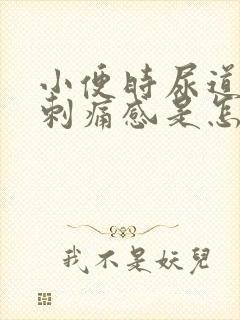 小便時尿道
刺痛感是怎
我不是妖兒